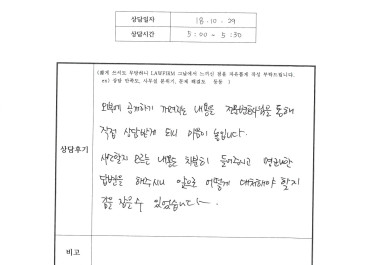 상담일자 18. 10. 29
상담시간 5:00 - 5:30
(짧게 쓰셔도 무방하니 LAWFIRM 그날에서 느끼신 점을 자유롭게 작성 부탁드립니다.
ex) 상담 만족도, 사무실 분위기, 문제 해결도 등등 )
상담후기
외부에 공개하기 꺼려지는 내용을 전문변호사님을 통해
직접 상담받게 되니 마음이 놓입니다.
사소할지 모르는 내용도 차분히 들어주시고 명쾌한
답변을 해주시니 앞으로 어떻게 대처해야 할지
감을 잡을 수 있었습니다.
비고